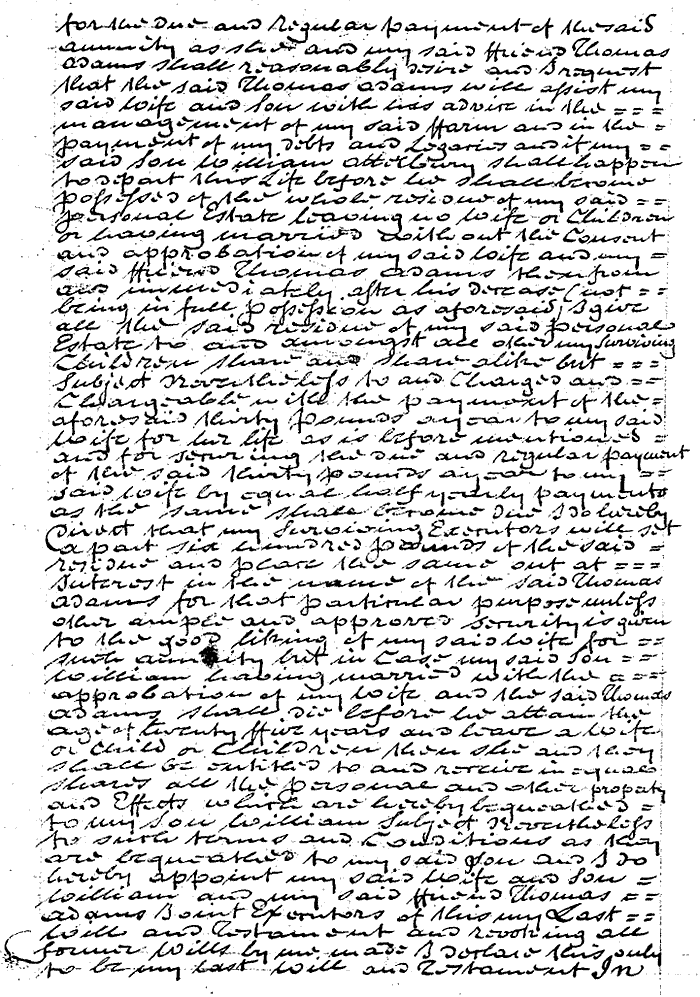 for the due and Regular payment of the said
annuity as she and my said ffriend Thomas
adams shall reasonably desire and I request
that the said Thomas adams will assist my
said wife and Son with his advice in the = = =
management of my said ffarm and in the =
payment of my debts and Legacies and if my = =
said Son William atterbury shall happen
to depart this Life before he shall become
possessed of the whole residue of my said = =
personal Estate leaving no wife or Children
or having married without the Consent
and approbation of my said wife and my =
said ffriend Thomas adams then from
and immediately after his decease (not = =
being in full possession as aforesaid) I give
all the said residue of my said personal
Estate to and amongst all other my surviving
Children share and share alike but = = =
Subject Nevertheless to and Charged and = =
Chargeable with the payment of the =
aforesaid thirty pounds a year to my said
wife for her life as is before mentioned =
and for securing the due and regular payment
of the said thirty pounds a year to my = =
said wife by equal half yearly payments
as the same shall become due I do hereby
Direct that my Surviving Executors will set
a part six hundred pounds of the said =
residue and place the same out at = = =
Interest in the name of the said Thomas
adams for that particular purpose unless
other ample and approved Security is given
to the good liking of my said wife for = =
such annuity but in Case my said Son = =
William having married with the = = =
approbation of my wife and the said Thomas
adams shall die before he attain the
age of twenty ffive years and leave a wife
or Child or Children then she and they
shall be entitled to and receive in equal
shares all the personal and other property
and Effects which are hereby bequeathed =
to my Son William Subject Nevertheless
to such terms and Conditions as they
are bequeathed to my said Son and I do
hereby appoint my said wife and Son =
William and my said ffriend Thomas =
adams Joint Executors of this my Last = =
Will and Testament and revoking all
former Wills by me made I declare this only
to be my last Will and Testament In